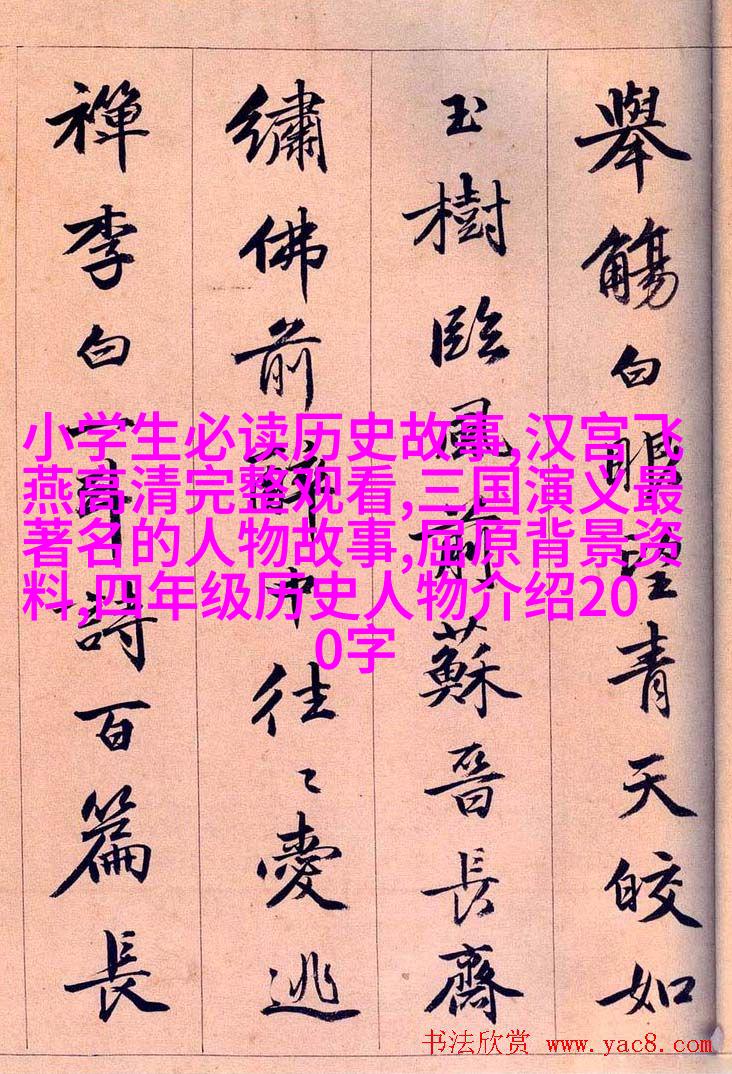 舉觴白眼望青天皎如
玉樹臨風前蘇晉長齋
繡佛前醉中往〻愛逃
禪李白一斗詩百篇長
小学生必读历史故事,汉宫飞
燕高清完整观看,三国演义最
著名的人物故事,屈原背景资
料,四年级历史人物介绍20
0字
书法欣赏 www.yac8.com